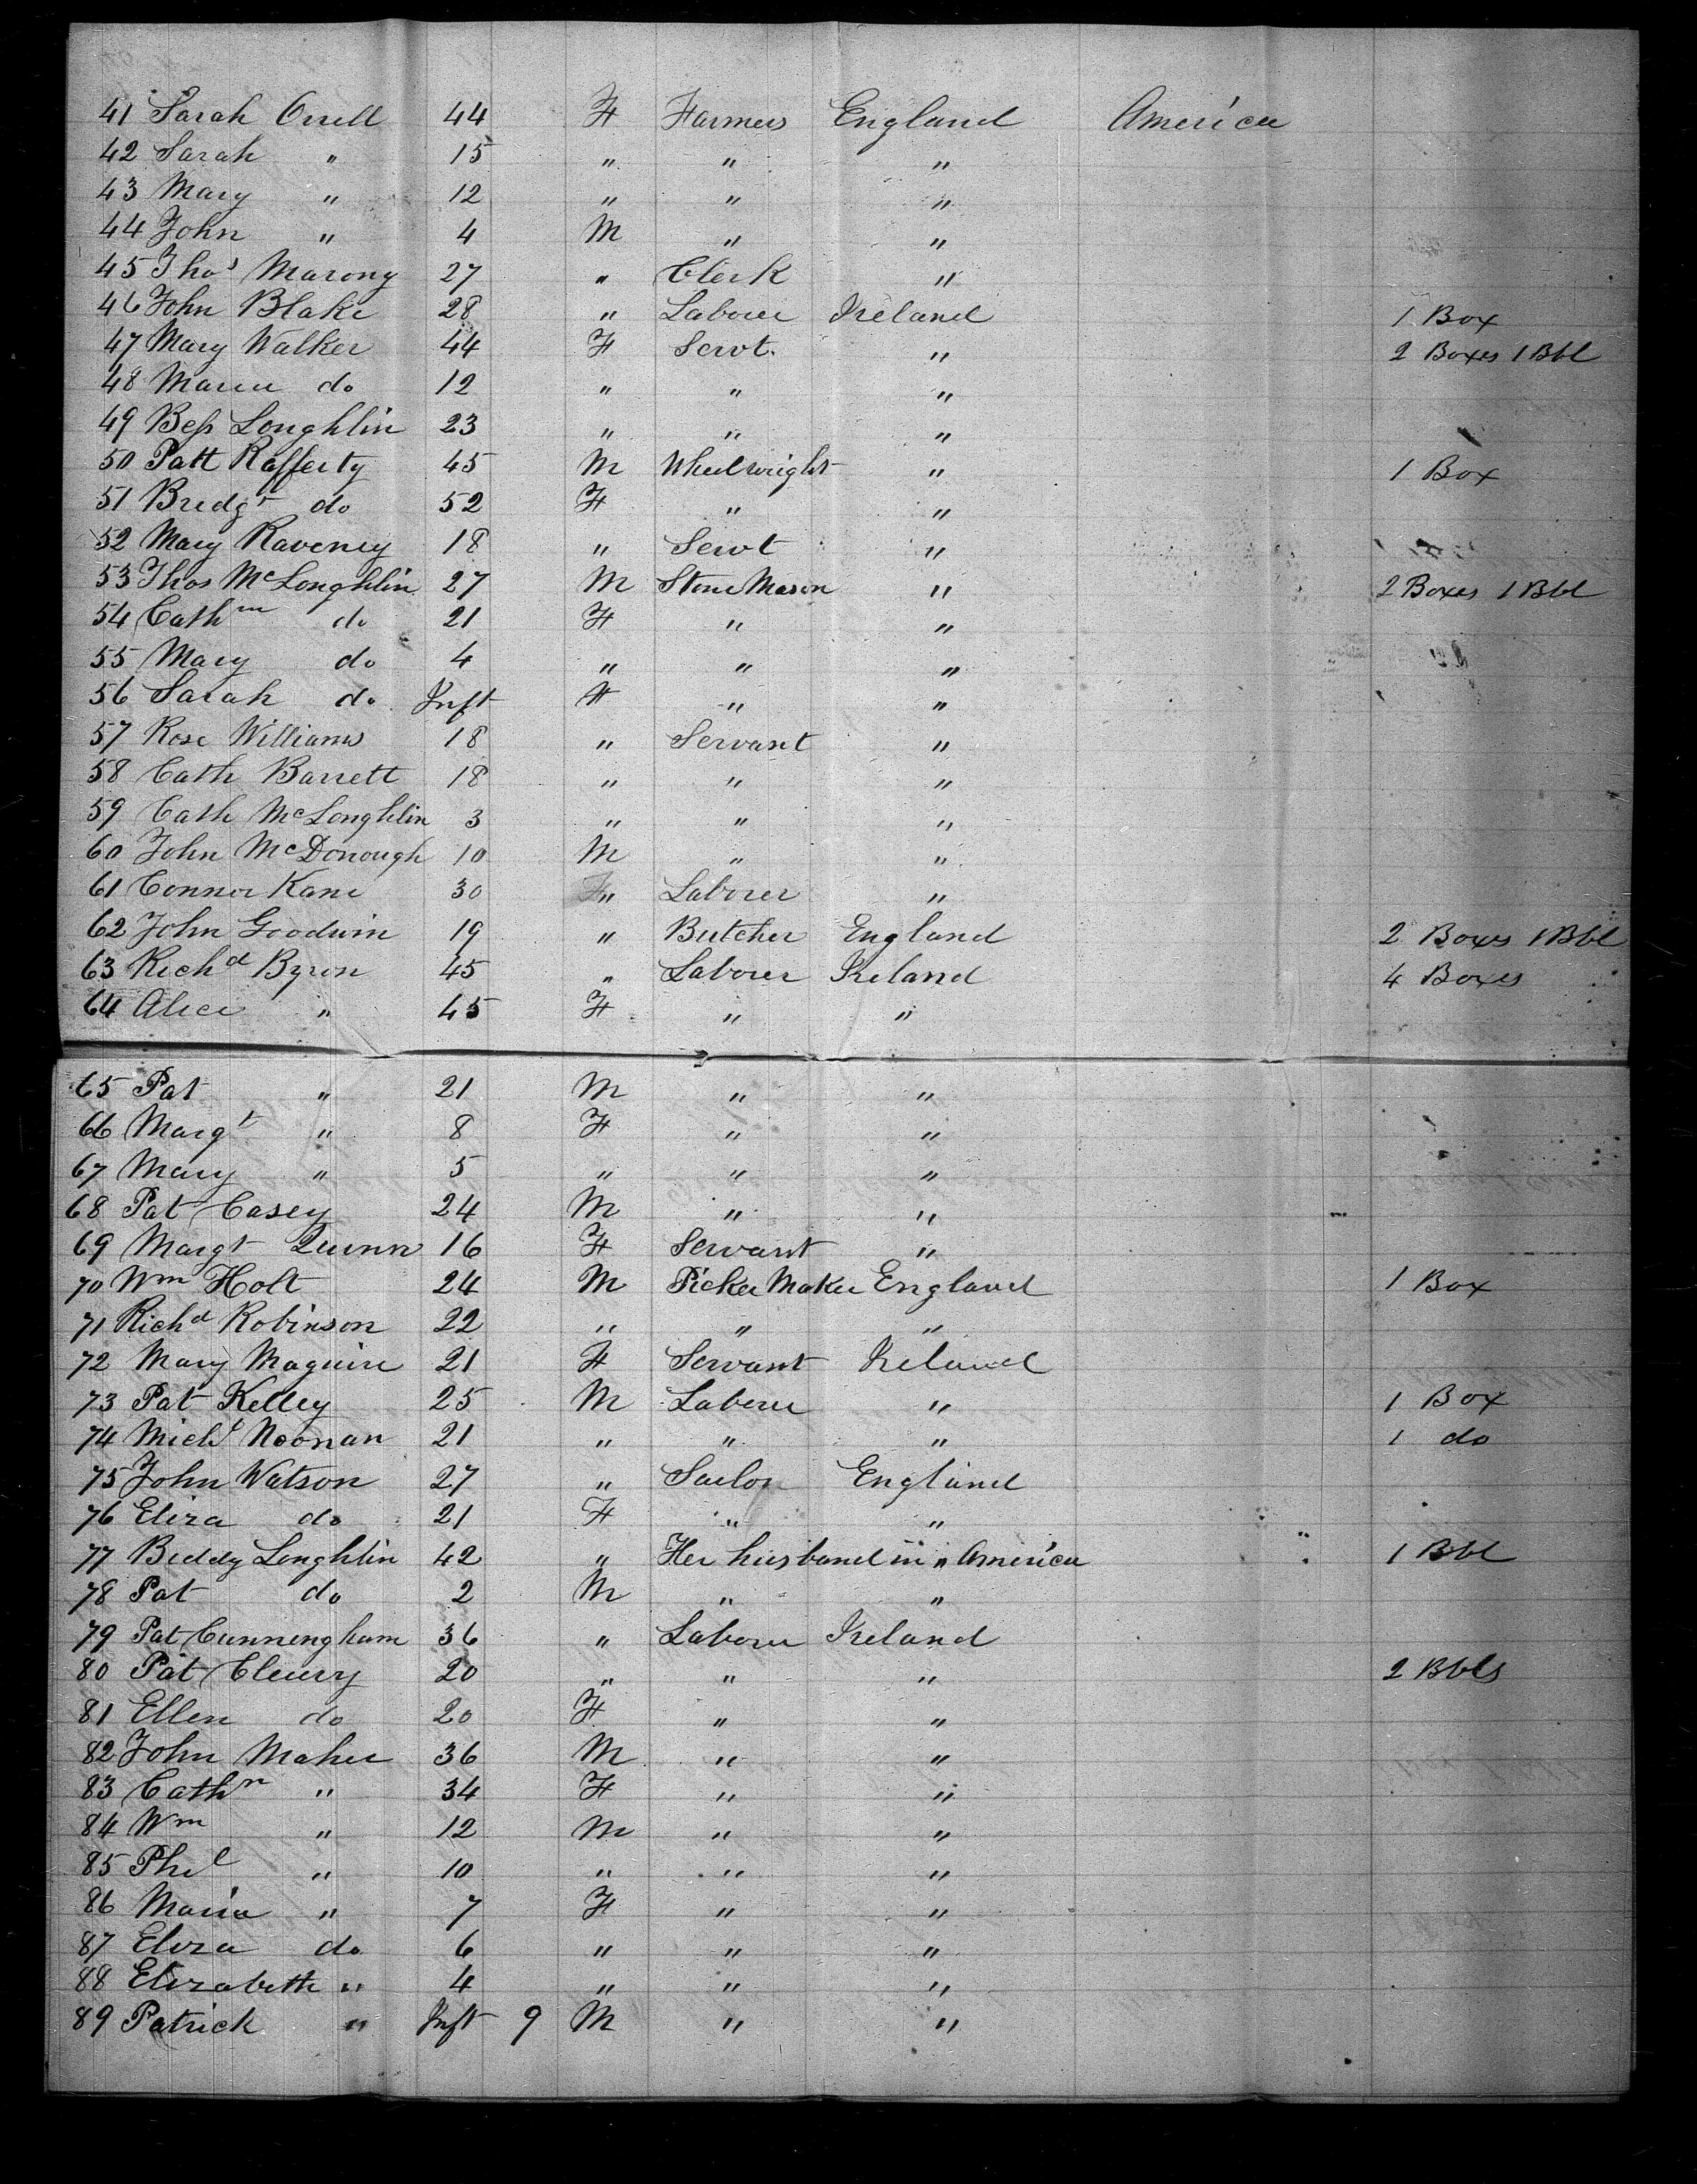 41 Sarah Orrell 44 F Farmers England America
42 Sarah " 15 " " "
43 Mary " 12 " " "
44 John " 4 M " "
45 Thos Marony 27 " Clerk "
46 John Blake 28 " Laborer Ireland 1 Box
47 Mary Walker 44 F Servt. " 2 Boxes 1 Bbl
48 Maria do 12 " " "
49 Bess Loughlin 23 " " "
50 Patt Rafferty 45 M Wheelwright " 1 Box
51 Bredgt do 52 F " "
52 Mary Raveney 18 " Servt "
53 Thos McLoughlin 27 M Stone Mason " 2 Boxes 1 Bbl
54 Cathrn do 21 F " "
55 Mary do 4 " " "
56 Sarah do Inft F " "
57 Rose Williams 18 " Servant "
58 Cath Barrett 18 " " "
59 Cath McLoughlin 3 " " "
60 John McDonough 10 M " "
61 Connor Kane 30 " Laborer "
62 John Goodwin 19 " Butcher England 2 Boxes 1 Bbl
63 Richd Byron 45 " Laborer Ireland 4 Boxes
64 Alice " 45 F " "
65 Pat " 21 M " "
66 Margt " 8 F " "
67 Mary " 5 " " "
68 Pat Casey 24 M " "
69 Margt Quinn 16 F Servant "
70 Wm Holt 24 M Picker Maker England 1 Box
71 Richd Robinson 22 " " "
72 Mary Maguire 21 F Servant Ireland
73 Pat Kelley 25 M Laborer " 1 Box
74 Michl Noonan 21 " " " 1 do
75 John Watson 27 " Sailor England
76 Eliza do 21 F " "
77 Biddy Loughlin 42 " Her husband in " America 1 Bbl
78 Pat do 2 M " "
79 Pat Cunningham 36 " Laborer Ireland
80 Pat Cleary 20 " " " 2 Bbls
81 Ellen do 20 F " "
82 John Maher 36 M " "
83 Cathn " 34 F " "
84 Wm " 12 M " "
85 Phil " 10 " " "
86 Maria " 7 F " "
87 Eliza do 6 " " "
88 Elizabeth " 4 " " "
89 Patrick " Inft 9 M " "